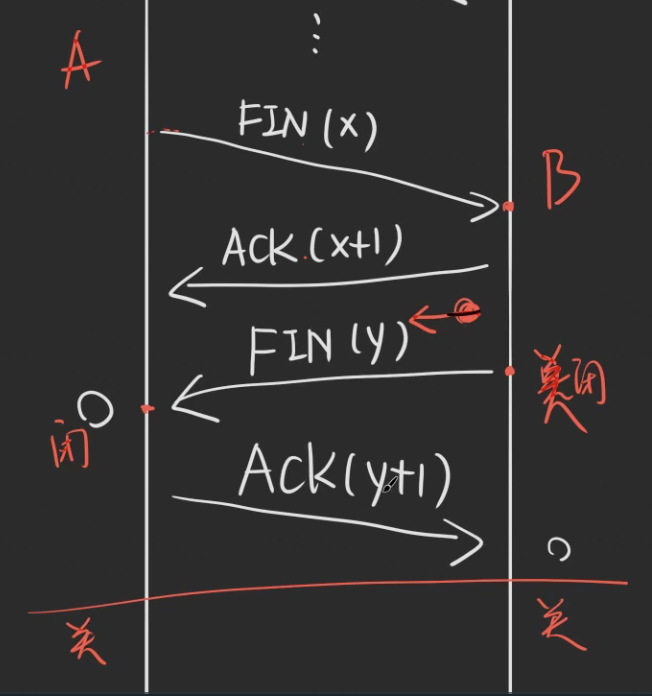 A
⋮
FIN(x)
B
Ack.(x+1)
FIN(y)
关闭
闭
Ack(y+1)
关
关